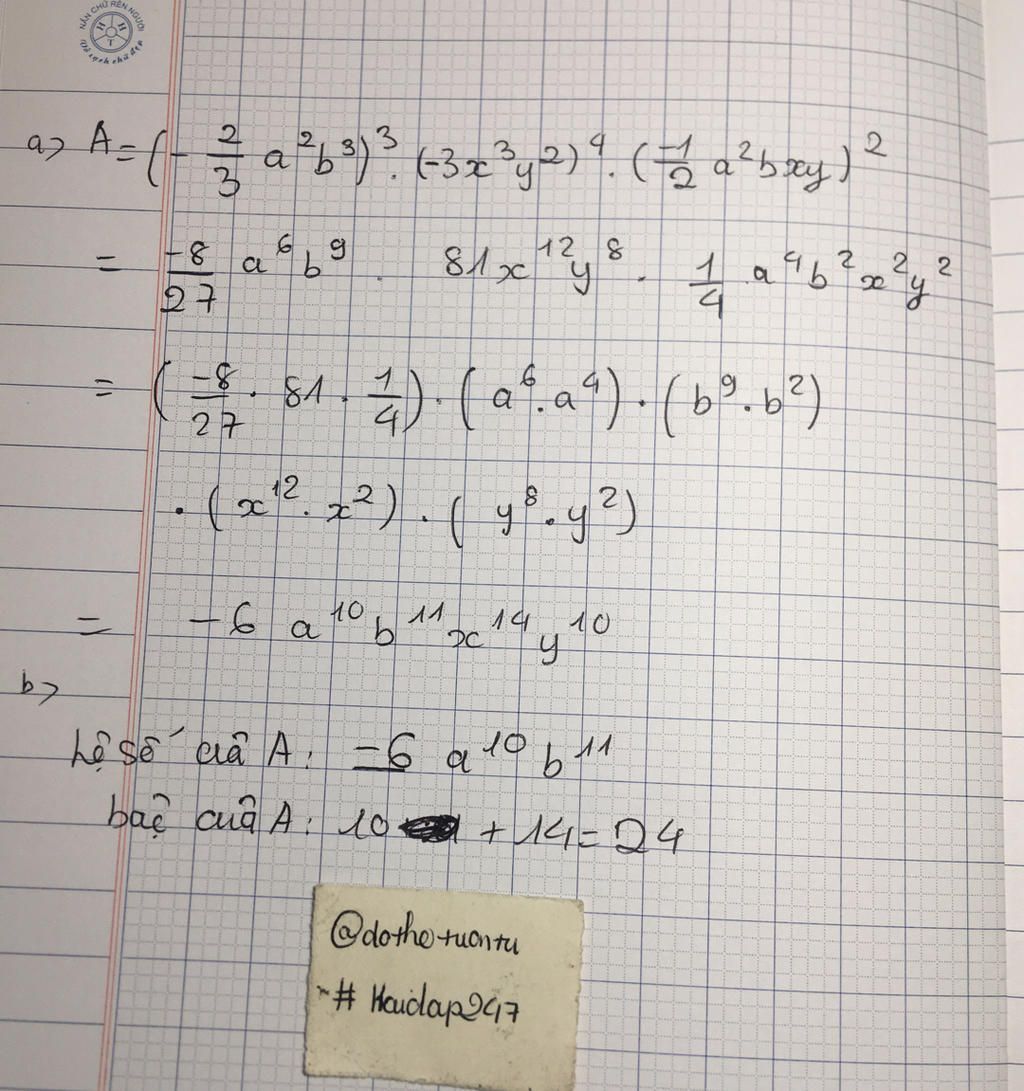 NẮN CHỮ RÈN NGƯỜI
H H T
Vở sạch chữ đẹp
a> A = (-2/3 a²b³)³ . (-3x³y²)⁴ . (-1/2 a²bxy)²
= -8/27 a⁶b⁹ . 81x¹²y⁸ . 1/4 a⁴b²x²y²
= (-8/27 . 81 . 1/4) . (a⁶.a⁴) . (b⁹.b²)
. (x¹².x²) . (y⁸.y²)
= -6 a¹⁰b¹¹x¹⁴y¹⁰
b>
hệ số của A: -6 a¹⁰b¹¹
bậc của A: 10 + 14 = 24
@dothetuantu
# Hoidap247